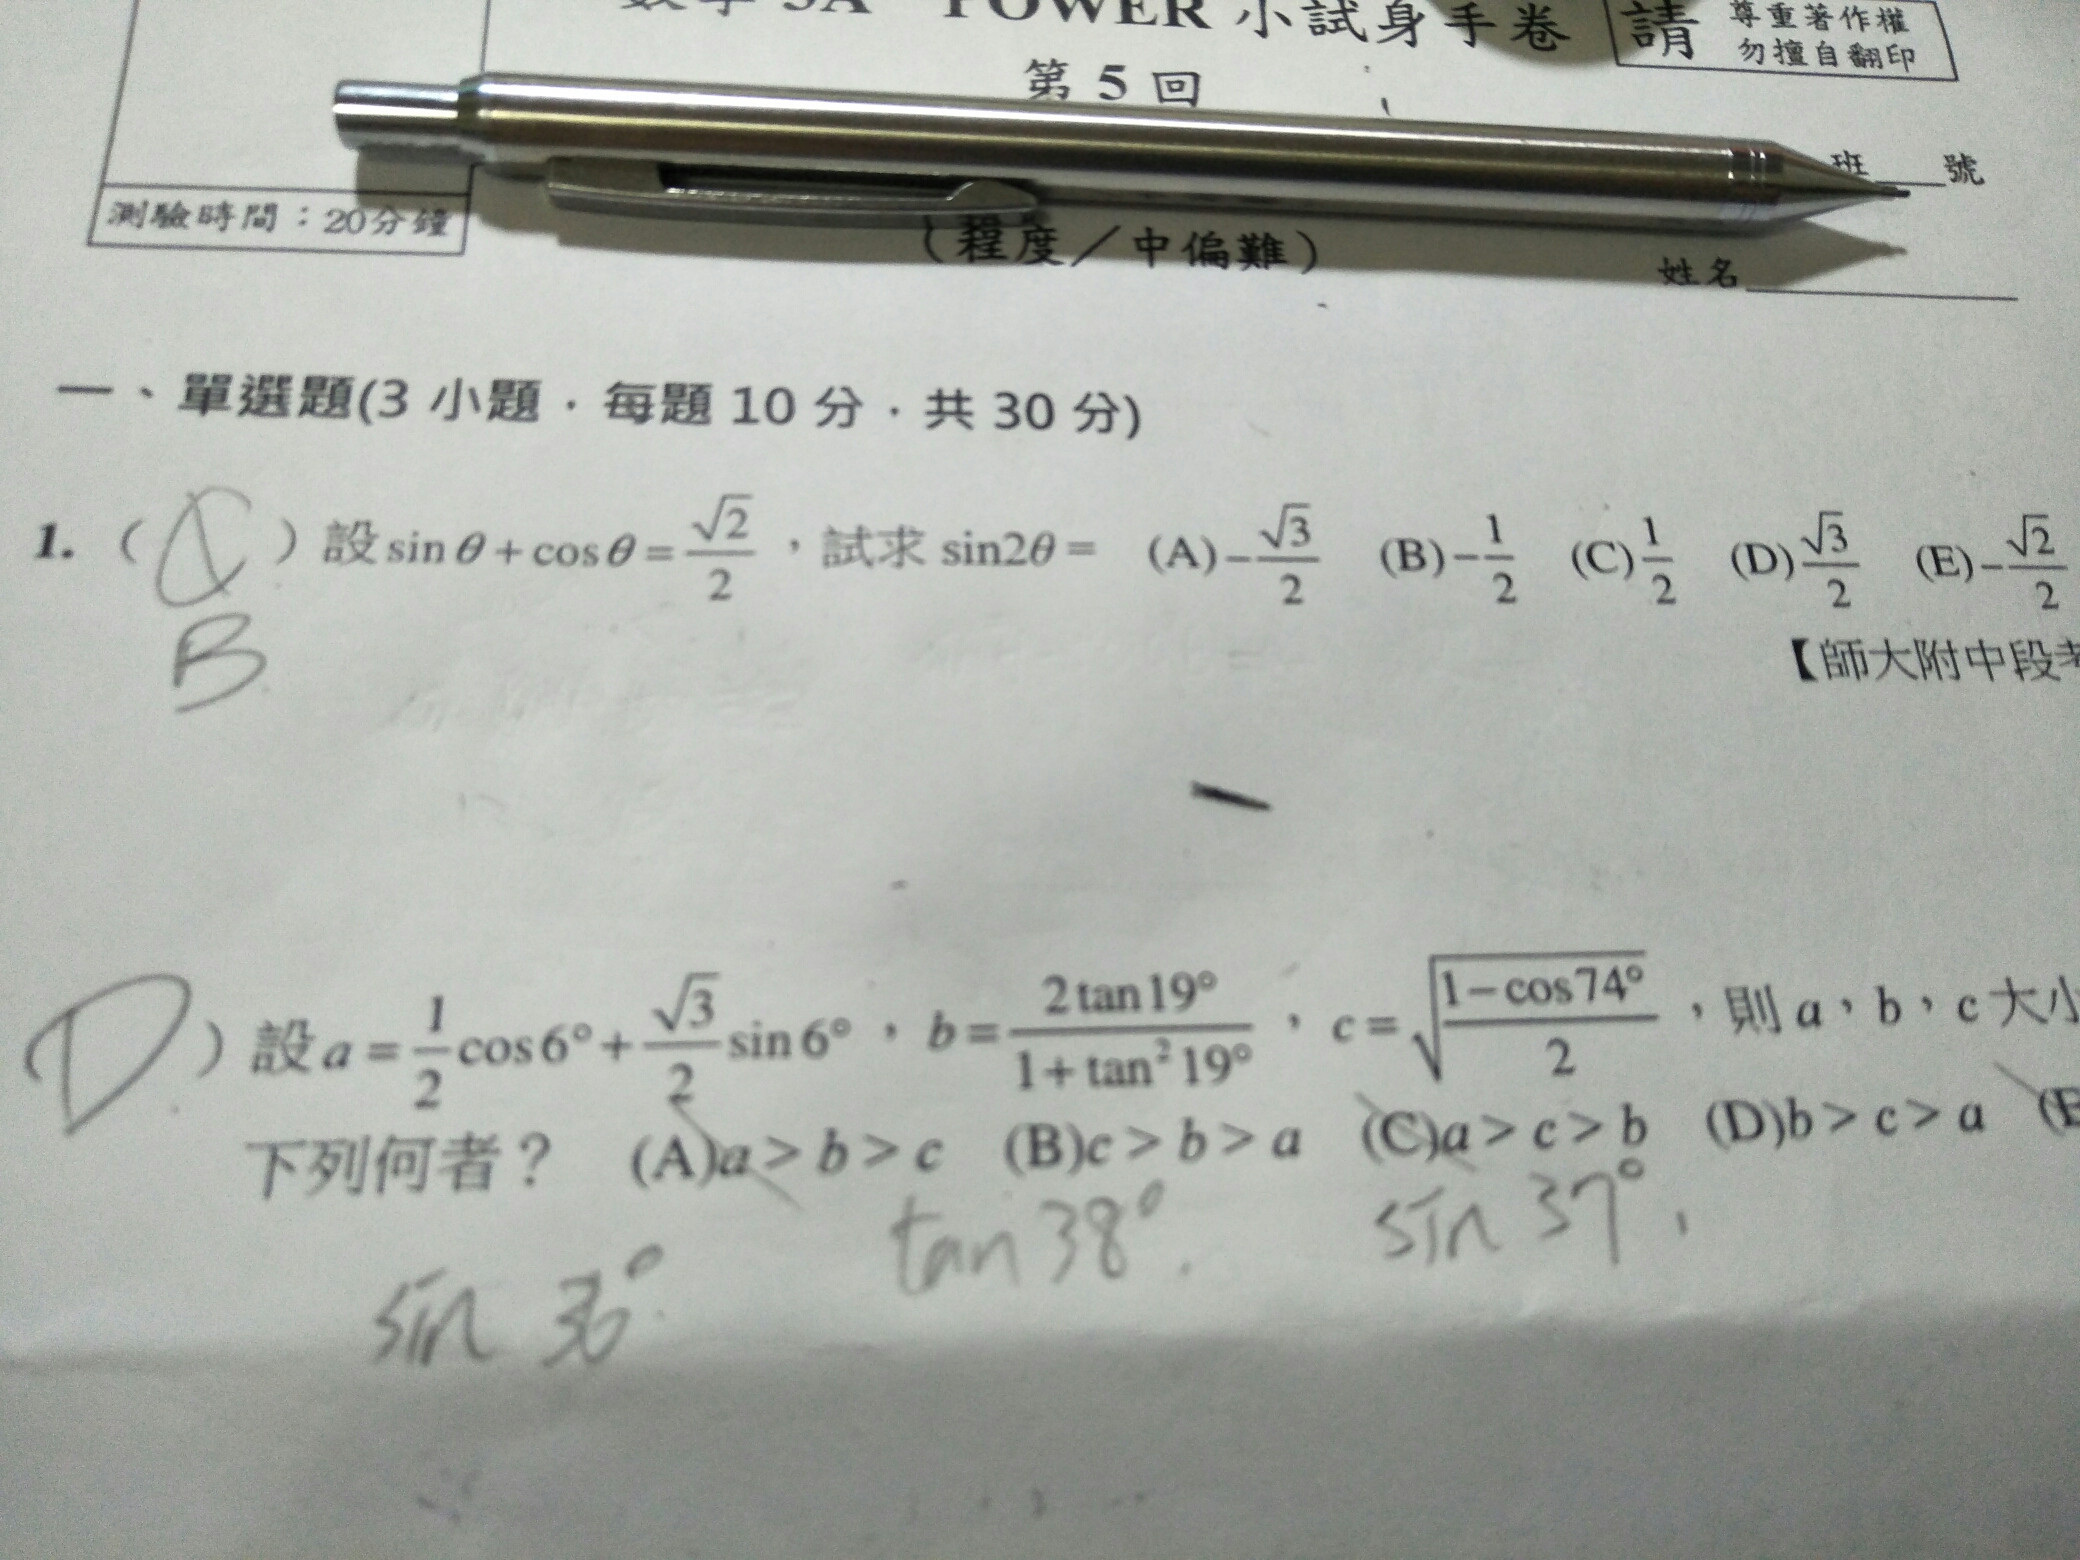 POWER 小試身手卷 請 尊重著作權
勿擅自翻印
第 5 回
班 號
測驗時間：20分鐘
(程度／中偏難)
姓名
一、單選題(3 小題，每題 10 分，共 30 分)
1. ( C ) 設 sin θ + cos θ = √2/2 ，試求 sin2θ = (A) -√3/2 (B) -1/2 (C) 1/2 (D) √3/2 (E) -√2/2
B
【師大附中段考
D ) 設 a = 1/2 cos6° + √3/2 sin6° ， b = 2tan19°/(1+tan²19°) ， c = √((1-cos74°)/2) ，則 a，b，c 大小
下列何者？ (A)a > b > c (B)c > b > a (C)a > c > b (D)b > c > a (E
sin 36° tan 38° sin 37°